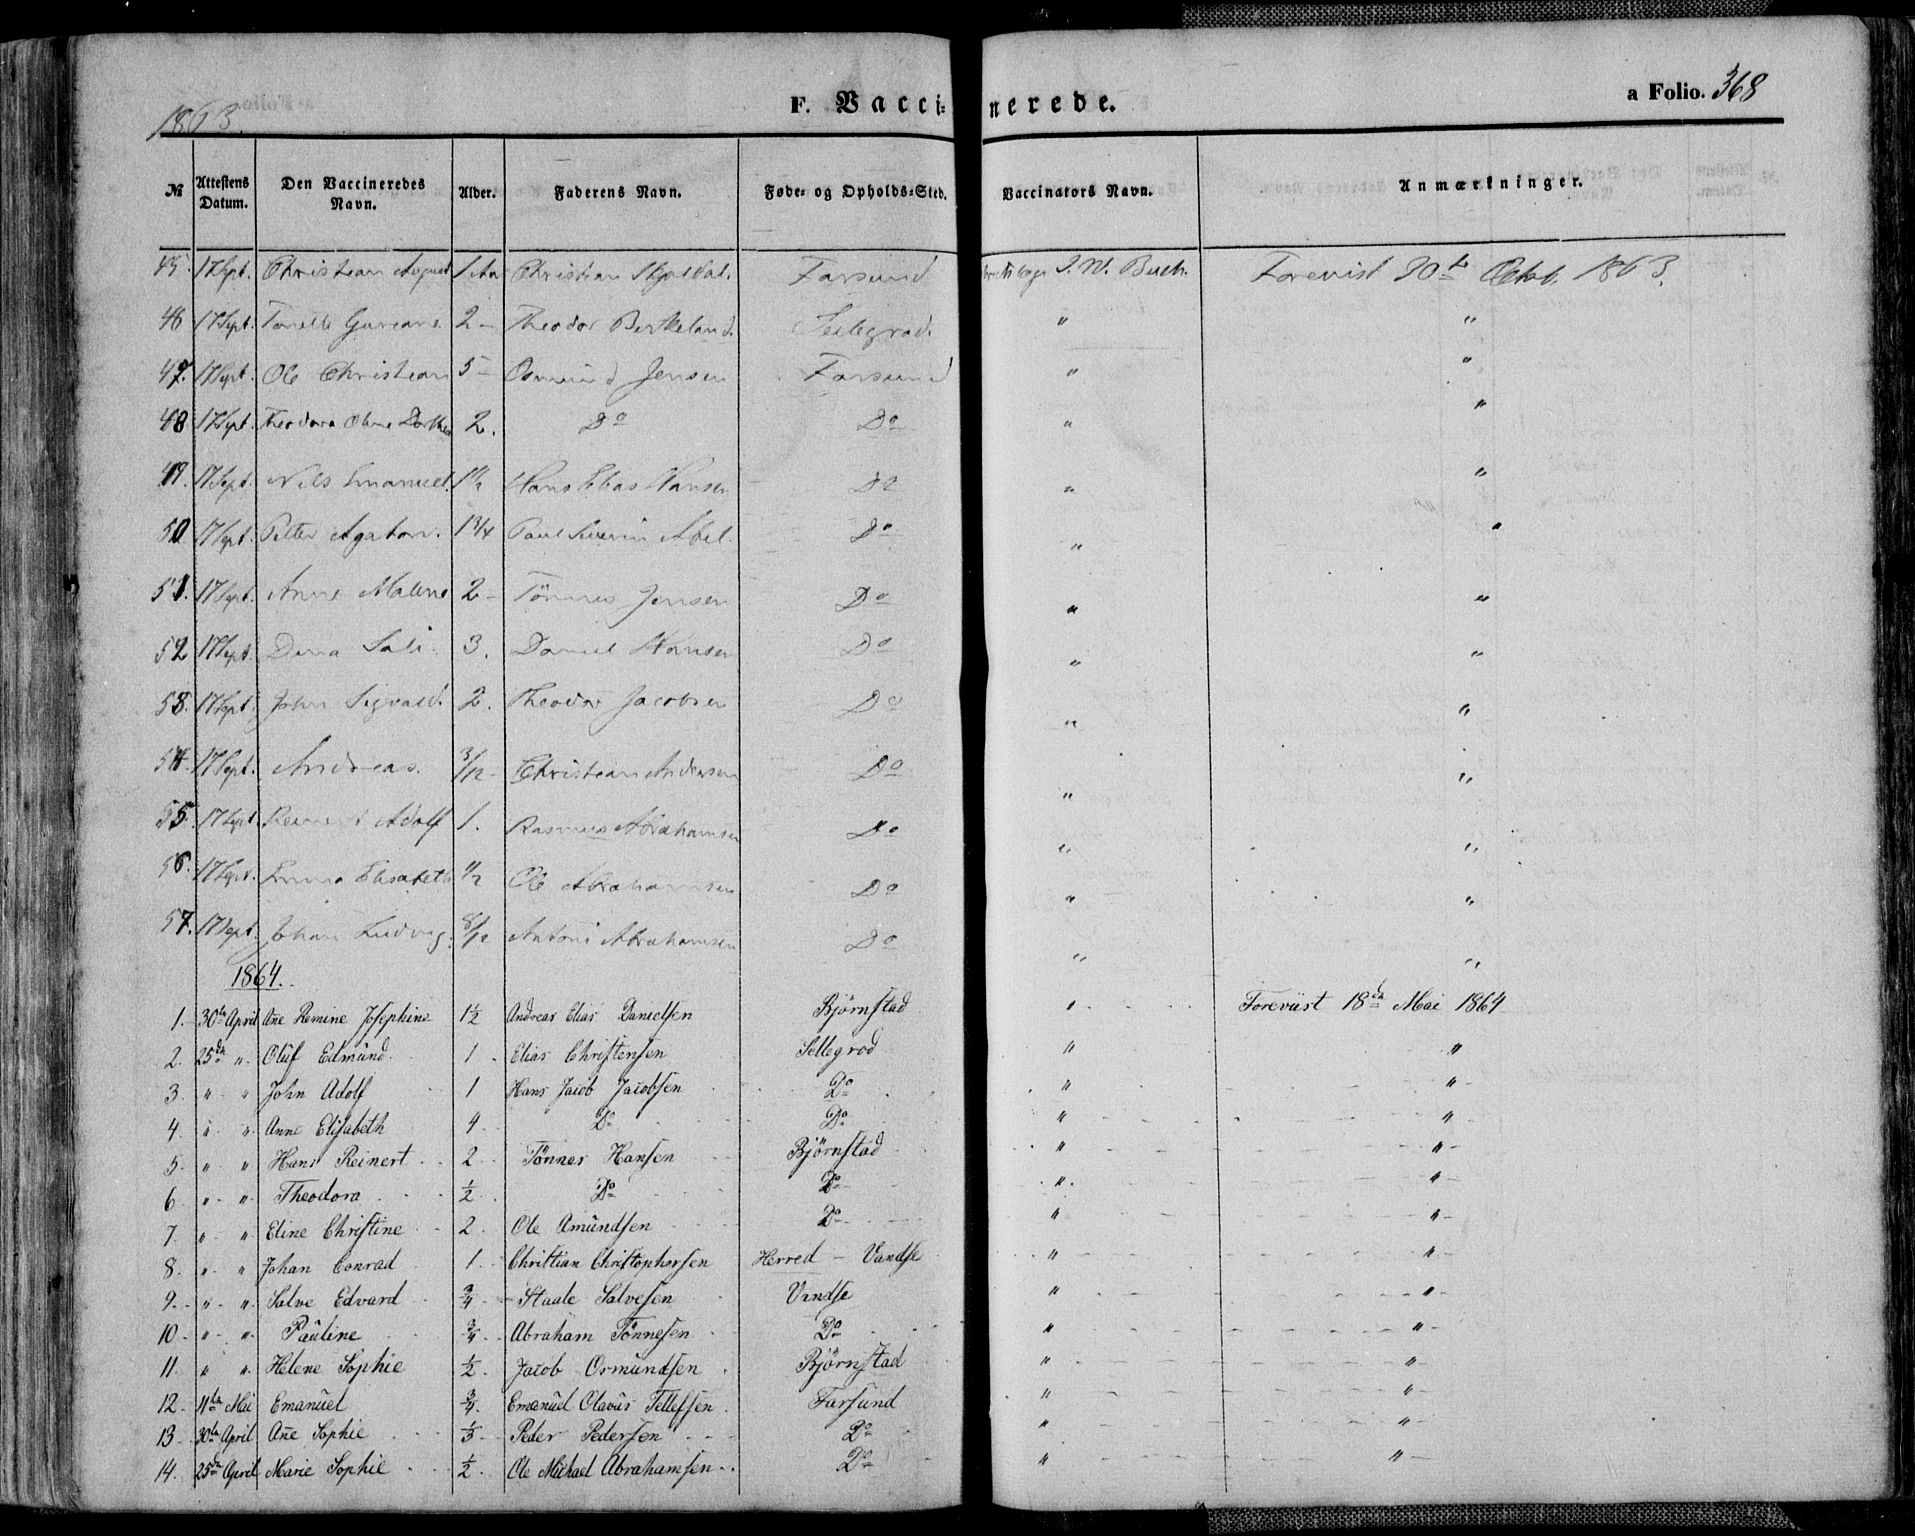 1863.
F. Vaccinerede.
a Folio. 368
№ Attestens Datum. Den Vaccineredes Navn. Alder. Faderens Navn. Føde- og Opholds-Sted. Vaccinators Navn. Anmærkninger.
45. 17 Sept. Christian August 1 Aar Christian Farsund J. W. Buch. Forevist 20de Octob. 1863.
46 17 Sept. 2 - Theodor Birkeland. " "
47. 17 Sept. Ole Christian 5 - Osmund Jensen Farsund " "
48 17 Sept. Theodora Oline Dorthea 2. Do Do " "
49. 17 Sept. Nils Emanuel. 1½ Hans Elias Hansen Do " "
50. 17 Sept. Petter Agaton. 1 3/4 Paul Severin Abel. Do " "
51. 17 Sept. Anne Malene 2 - Tönnes Jensen Do " "
52 17 Sept. 3. Daniel Hansen Do " "
53. 17 Sept. John Sigvald. 2. Theodor Jacobsen Do " "
54. 17 Sept. Andreas. 3/12 - Christian Andersen Do " "
55. 17 Sept. Reinert Adolf 1. Rasmus Abrahamsen Do " "
56. 17 Sept. Emma Elisabeth ½ Ole Abrahamsen Do " "
57. 17 Sept. Johan Ludvig. 8/12 Antoni Abrahamsen Do " "
1864.
1. 30te April Ane Remine Josephine 1½ Andreas Elias Danielsen Bjørnstad " Foreviist 18de Mai 1864
2. 25de " Oluf Edmund 1. Elias Christensen Sellegrod " "
3. " " John Adolf 1 Hans Jacob Jacobsen Do " "
4. " " Anne Elisabeth 4 Do Do " "
5. " " Hans Reinert 2 Tönnes Hansen Bjørnstad " "
6. " " Theodora ½ Do Do " "
7. " " Eline Christine 2. Ole Amundsen Do " "
8. " " Johan Conrad 1. Christian Christophersen Herred - Vandse " "
9. " " Salve Edvard ¾ Staale Salvesen Vandse " "
10 " " Pauline ¾ Abraham Tönnesen Do " "
11. " " Helene Sophie ½ Jacob Osmundsen Bjørnstad " "
12. 11te Mai Emanuel ¾. Emanuel Olavus Tellefsen. Farsund " "
13 30te April Ane Sophie ⅓ Peder Pedersen Do " "
14. 25de April Marie Sophie ½. Ole Michael Abrahamsen Do " "